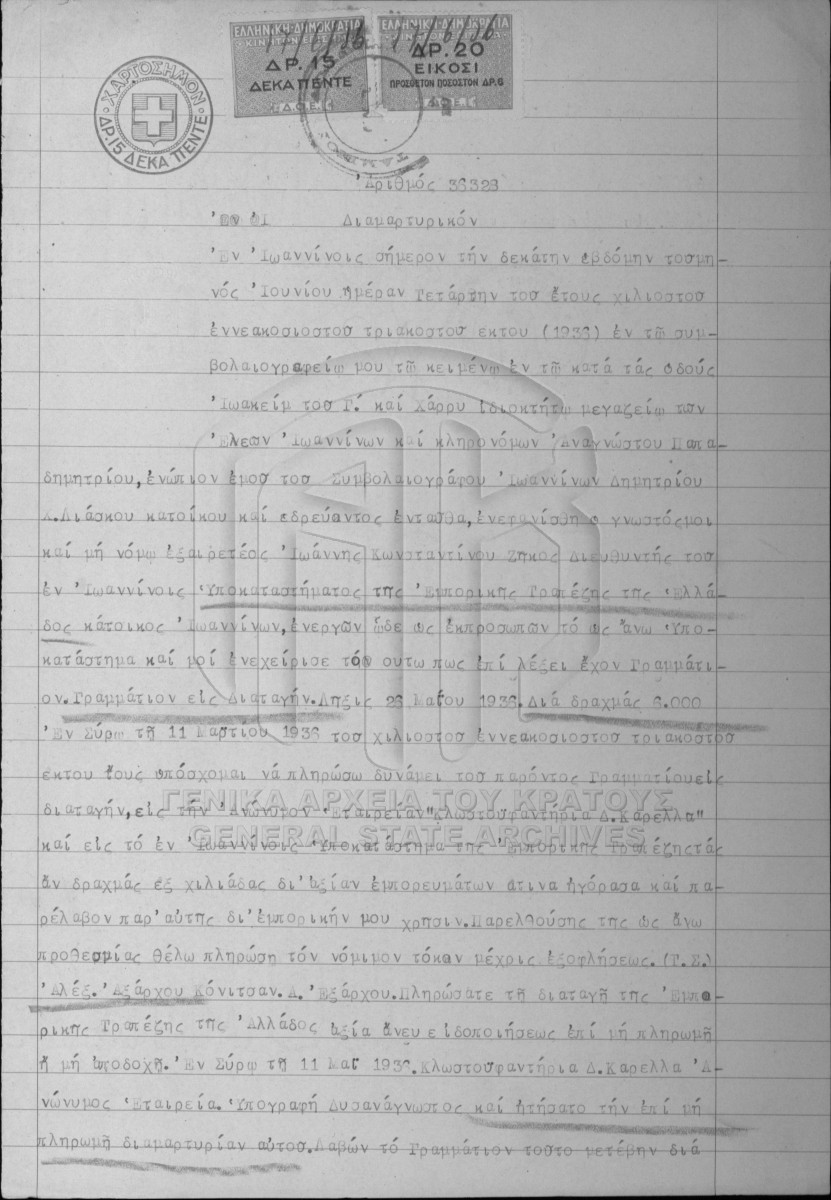 ΕΛΛΗΝΙΚΗ·ΔΗΜΟΚΡΑΤΙΑ
ΔΡ. 15
ΔΕΚΑΠΕΝΤΕ
ΕΛΛΗΝΙΚΗ·ΔΗΜΟΚΡΑΤΙΑ
ΔΡ. 20
ΕΙΚΟΣΙ
ΠΡΟΣΘΕΤΟΝ ΠΟΣΟΣΤΟΝ ΔΡ. 6
ΧΑΡΤΟΣΗΜΟΝ
ΔΡ. 15 ΔΕΚΑ ΠΕΝΤΕ
Ἀριθμός 36328
Διαμαρτυρικόν
Ἐν Ἰωαννίνοις σήμερον τήν δεκάτην εβδόμην τοσμη-
νός Ἰουνίου ἡμέραν Τετάρτην τοσ ἔτους χιλιοστοσ
ἐννεακοσιοστοσ τριακοστοσ εκτου (1936) ἐν τῶ συμ-
βολαιογραφείω μου τῶ κειμένω ἐν τῶ κατά τάς οδούς
Ἰωακείμ τοσ Γ' καί Χάρρυ ιδιοκτήτω μεγαζείω των
Ἐλεων Ἰωαννίνων καί κληρονόμων Ἀναγνώστου Παπα-
δημητρίου, ἐνώπιον ἐμοσ τοσ Συμβολαιογράφου Ἰωαννίνων Δημητρίου
Χ.Διάσκου κατοίκου καί εδρεύοντος ἐντασθα, ἐνεφανίσθη ο γνωστόςμοι
καί μή νόμω ἐξαιρετέος Ἰωάννης Κωνσταντίνου Ζηκος Διευθυντής τοσ
ἐν Ἰωαννίνοις Ὑποκαταστήματος της Ἐμπορικης Τραπέζης της Ἑλλά-
δος κάτοικος Ἰωαννίνων, ἐνεργῶν ὧδε ως ἐκπροσωπῶν τό ως ἄνω Ὑπο-
κατάστημα καί μοί ἐνεχείρισε τόν ουτω πως ἐπί λέξει ἔχον Γραμμάτι-
ον. Γραμμάτιον εἰς Διαταγήν. Ληξις 26 Μαΐου 1936. Διά δραχμάς 6.000
Ἐν Σύρω τῆ 11 Μαρτίου 1936 τοσ χιλιοστοσ ἐννεακοσιοστοσ τριακοστοσ
έκτου ἔτους υπόσχομαι νά πληρώσω δυνάμει τοσ παρόντος Γραμματίουεἰς
διαταγήν, εἰς τήν Ἀνώνυμον Ἑταιρείαν "Κλωστουφαντήρια Δ.Καρελλα"
καί εἰς τό ἐν Ἰωαννίνοις Ὑποκατάστημα της Ἐμπορικης Τραπέζηςτάς
ἄν δραχμάς ἐξ χιλιάδας δι' ἀξίαν ἐμπορευμάτων ατινα ἠγόρασα καί πα-
ρέλαβον παρ' αὐτης δι' ἐμπορικήν μου χρησιν. Παρελθούσης της ως ἄνω
προθεσμίας θέλω πληρώση τόν νόμιμον τόκον μέχρις ἐξοφλήσεως. (Τ.Σ.)
Ἀλέξ. Ἀξάρχου Κόνιτσαν. Α. Ἐξάρχου. Πληρώσατε τῆ διαταγῆ της Ἐμπο-
ρικης Τραπέζης της Ἀλλάδος ἀξία ἄνευ ειδοποιήσεως ἐπί μή πληρωμῆ
ἤ μή ἀποδοχῆ. Ἐν Σύρω τῆ 11 Μαΐ 1936. Κλωστουφαντήρια Δ.Καρελλα Ἀ-
νώνυμος Ἑταιρεία. Ὑπογραφή Δυσανάγνωστος καί ἠτήσατο τήν ἐπί μή
πληρωμῆ διαμαρτυρίαν αὐτοσ. Λαβών τό Γραμμάτιον τοστο μετέβην διά
ΓΕΝΙΚΑ ΑΡΧΕΙΑ ΤΟΥ ΚΡΑΤΟΥΣ
GENERAL STATE ARCHIVES